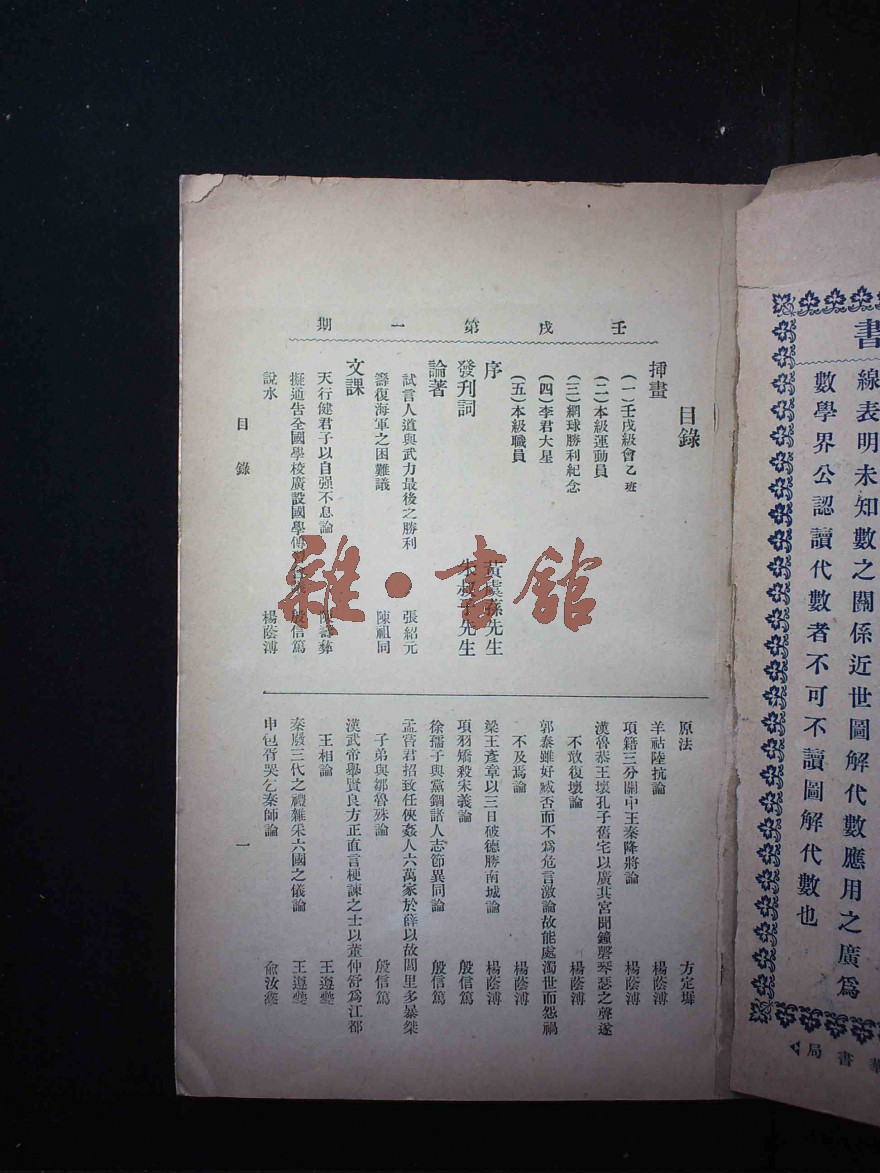 壬戌第一期
目錄
揷畫
(一)壬戌級會乙班
(二)本級運動員
(三)網球勝利紀念
(四)李君大星
(五)本級職員
序 黃虞孫先生
發刊詞 朱叔子先生
論著
試言人道與武力最後之勝利 張紹元
籌復海軍之困難議 陳祖同
文課
天行健君子以自强不息論
擬通告全國學校廣設國學 殷信篤
說水 楊蔭溥
原法 方定墀
羊祜陸抗論 楊蔭溥
項籍三分關中王秦降將論 楊蔭溥
漢魯恭王壞孔子舊宅以廣其宮聞鐘磬琴瑟之聲遂
不敢復壞論 楊蔭溥
郭泰雖好臧否而不爲危言激論故能處濁世而怨禍
不及焉論 楊蔭溥
梁王彥章以三日破德勝南城論 楊蔭溥
項羽矯殺宋義論 殷信篤
徐孺子與黨錮諸人志節異同論 殷信篤
孟嘗君招致任俠姦人六萬家於薛以故閭里多暴桀
子弟與鄒魯殊論 殷信篤
漢武帝舉賢良方正直言極諫之士以董仲舒爲江都
王相論 王遵
秦廢三代之禮雜采六國之儀論 王遵
申包胥哭乞秦師論 俞汝
目錄
一
雜·書館
書
線表明未知數之關係近世圖解代數應用之廣爲
數學界公認讀代數者不可不讀圖解代數也
書局